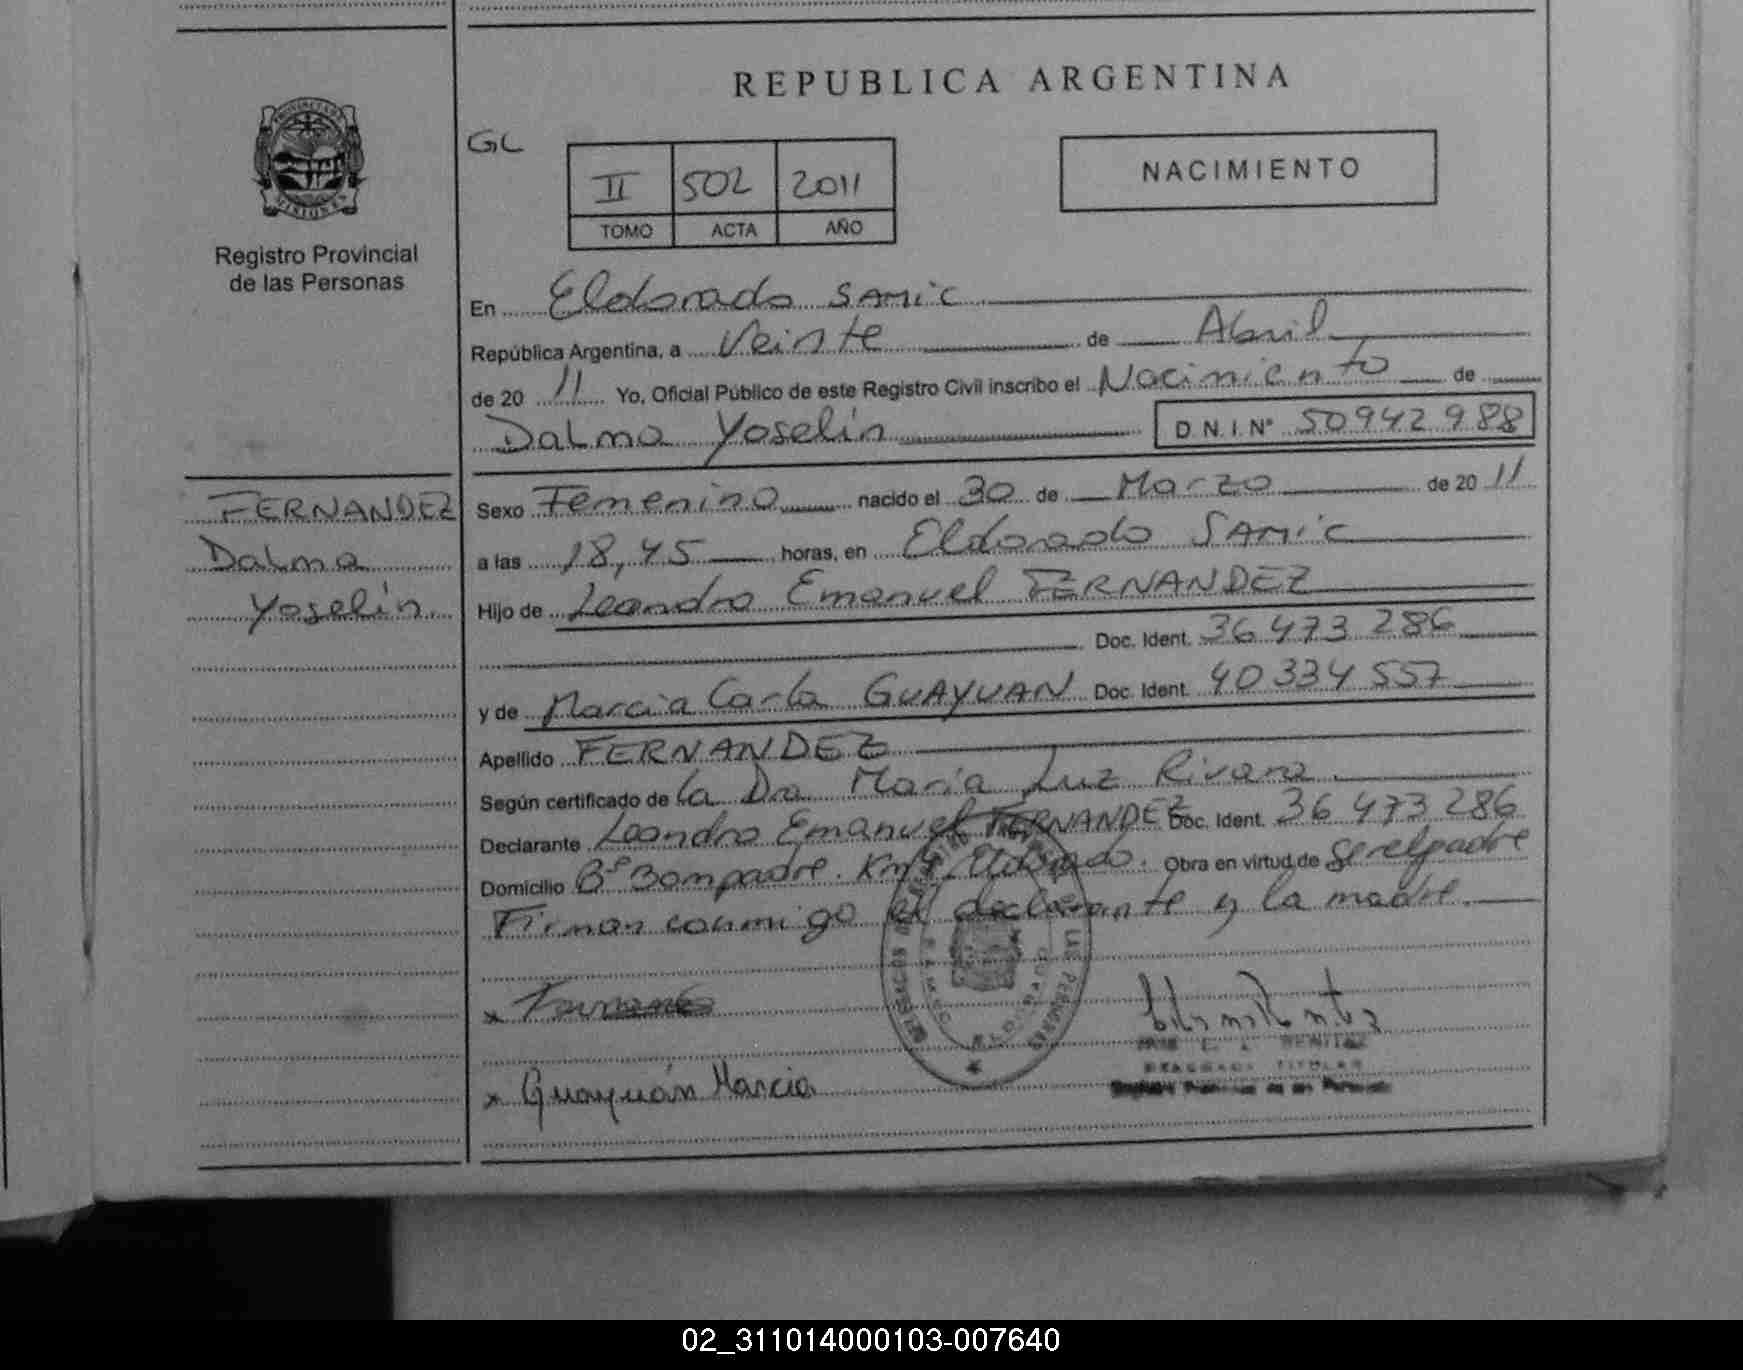 REPUBLICA ARGENTINA
GL
II 502 2011
TOMO ACTA AÑO
NACIMIENTO
PROVINCIA DE MISIONES
Registro Provincial
de las Personas
En Eldorado SAMIC
República Argentina, a Veinte de Abril
de 20 11 Yo, Oficial Público de este Registro Civil inscribo el Nacimiento de
Dalma Yoselín D.N.I.N° 50942988
FERNANDEZ
Dalma
Yoselín
Sexo Femenino nacido el 30 de Marzo de 20 11
a las 18,45 horas, en Eldorado SAMIC
Hijo de Leandro Emanuel FERNANDEZ
Doc. Ident. 36 473 286
y de Marcia Carla GUAYUAN Doc. Ident. 40 334 557
Apellido FERNANDEZ
Según certificado de la Dra María Luz Rivara
Declarante Leandro Emanuel FERNANDEZ Doc. Ident. 36 473 286
Domicilio B° Bompadre. Km Eldorado. Obra en virtud de ser el padre
Firman conmigo el declarante y la madre.
x
x Guayuán Marcia
BENITEZ
TITULAR
02_311014000103-007640